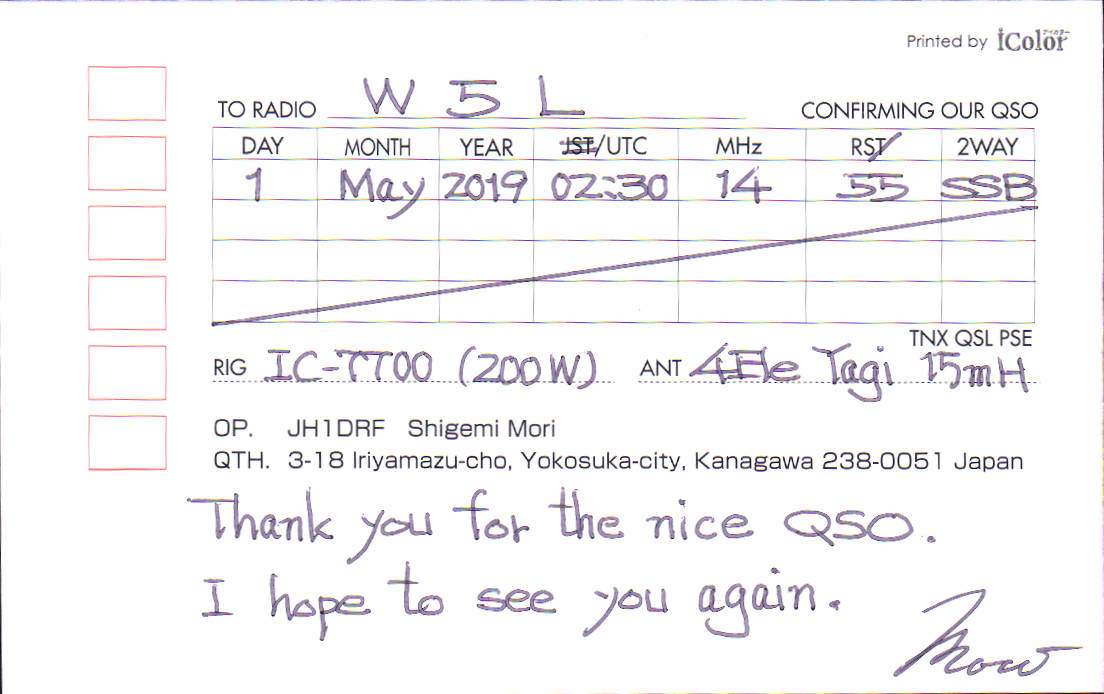 Printed by iColor
TO RADIO W5L CONFIRMING OUR QSO
DAY MONTH YEAR JST/UTC MHz RST 2WAY
1 May 2019 02:30 14 55 SSB
TNX QSL PSE
RIG IC-7700 (200W) ANT 4Ele Yagi 15mH
OP. JH1DRF Shigemi Mori
QTH. 3-18 Iriyamazu-cho, Yokosuka-city, Kanagawa 238-0051 Japan
Thank you for the nice QSO.
I hope to see you again.